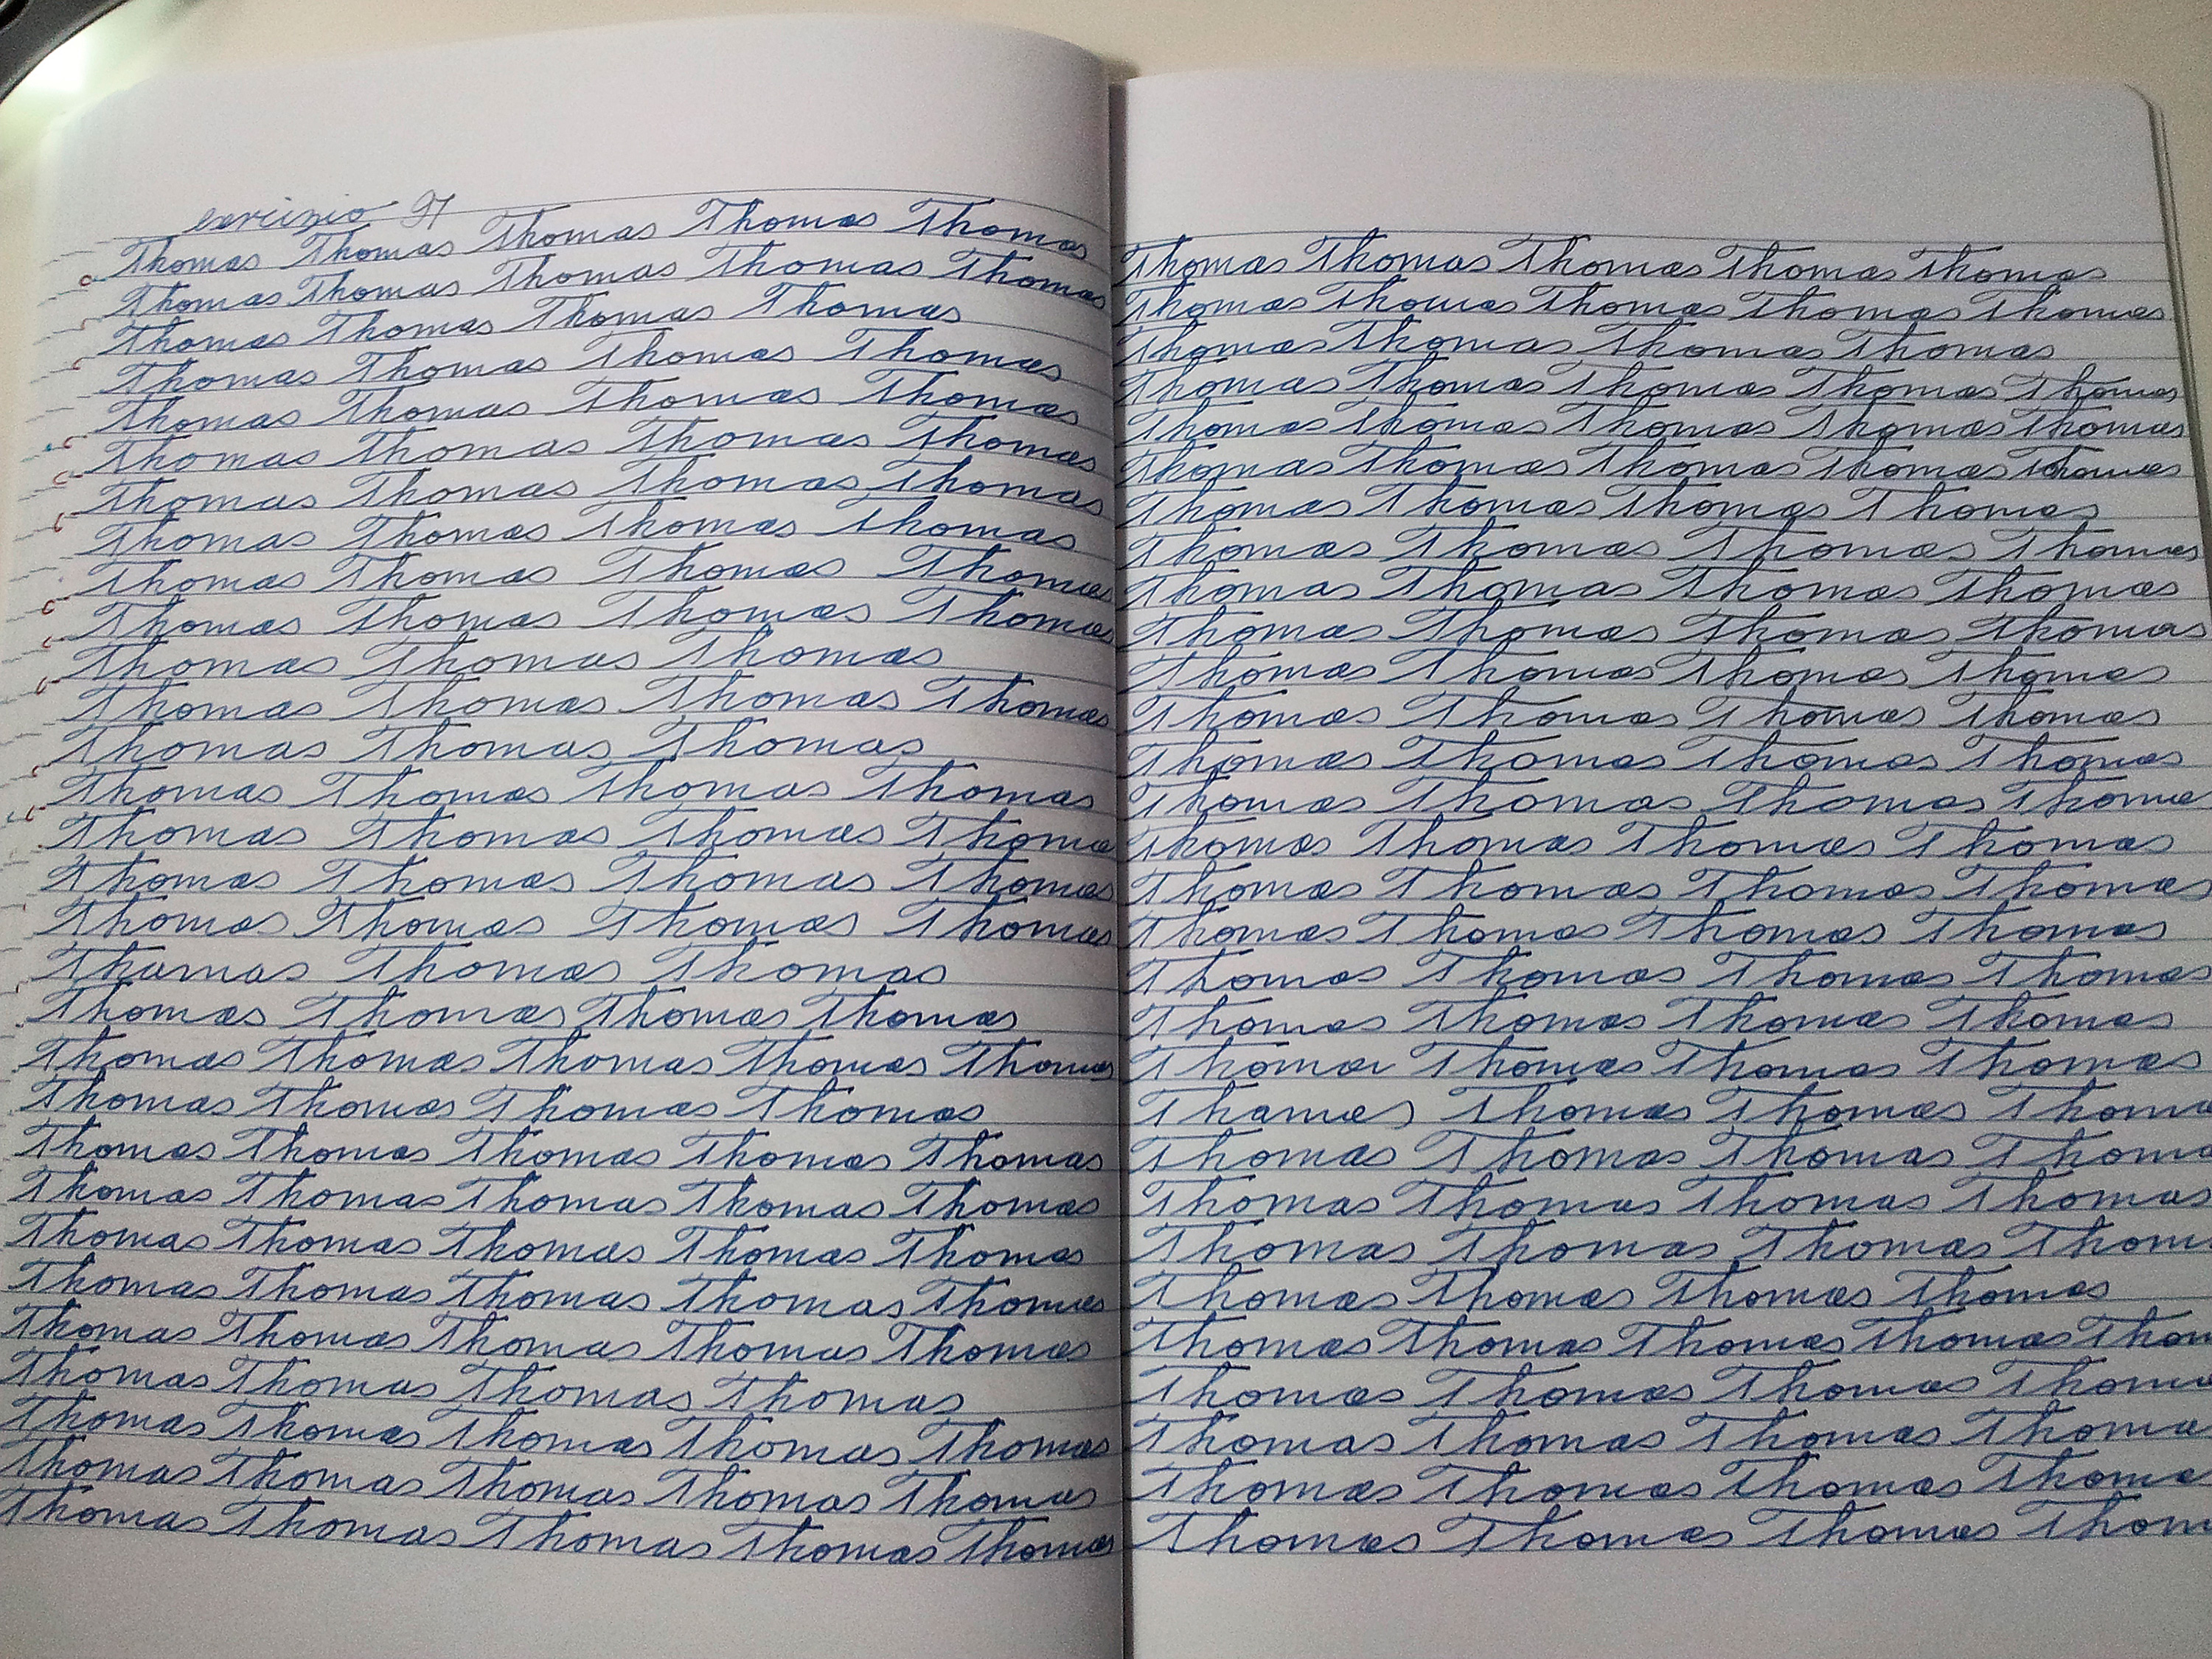 esercizio 97
Thomas Thomas Thomas Thomas Thomas
Thomas Thomas Thomas Thomas Thomas
Thomas Thomas Thomas Thomas
Thomas Thomas Thomas Thomas
Thomas Thomas Thomas Thomas
Thomas Thomas Thomas Thomas
Thomas Thomas Thomas Thomas
Thomas Thomas Thomas Thomas
Thomas Thomas Thomas Thomas
Thomas Thomas Thomas Thomas
Thomas Thomas Thomas
Thomas Thomas Thomas Thomas
Thomas Thomas Thomas
Thomas Thomas Thomas Thomas
Thomas Thomas Thomas Thomas
Thomas Thomas Thomas Thomas
Thomas Thomas Thomas Thomas
Thamas Thomas Thomas
Thomas Thomas Thomas Thomas
Thomas Thomas Thomas Thomas Thomas
Thomas Thomas Thomas Thomas
Thomas Thomas Thomas Thomas Thomas
Thomas Thomas Thomas Thomas Thomas
Thomas Thomas Thomas Thomas Thomas
Thomas Thomas Thomas Thomas Thomas
Thomas Thomas Thomas Thomas Thomas
Thomas Thomas Thomas Thomas
Thomas Thomas Thomas Thomas Thomas
Thomas Thomas Thomas Thomas Thomas
Thomas Thomas Thomas Thomas Thomas
Thomas Thomas Thomas Thomas Thomas
Thomas Thomas Thomas Thomas Thomas
Thomas Thomas Thomas Thomas
Thomas Thomas Thomas Thomas Thomas
Thomas Thomas Thomas Thomas Thomas
Thomas Thomas Thomas Thomas Thomas
Thomas Thomas Thomas Thomas
Thomas Thomas Thomas Thomas
Thomas Thomas Thomas Thomas
Thomas Thomas Thomas Thomas
Thomas Thomas Thomas Thomas
Thomas Thomas Thomas Thomas
Thomas Thomas Thomas Thomas
Thomas Thomas Thomas Thoma
Thomas Thomas Thomas Thomas
Thomas Thomas Thomas Thomas
Thomas Thomas Thomas Thomas
Thomas Thomas Thomas Thomas
Thomas Thomas Thomas Thomas
Thomas Thomas Thomas Thomas
Thamas Thomas Thomas Thoma
Thomas Thomas Thomas Thoma
Thomas Thomas Thomas Thomas
Thomas Thomas Thomas Thom
Thomas Thomas Thomas Thomas
Thomas Thomas Thomas Thomas Thom
Thomas Thomas Thomas Thoma
Thomas Thomas Thomas Thoma
Thomas Thomas Thomas Thoma
Thomas Thomas Thomas Thom